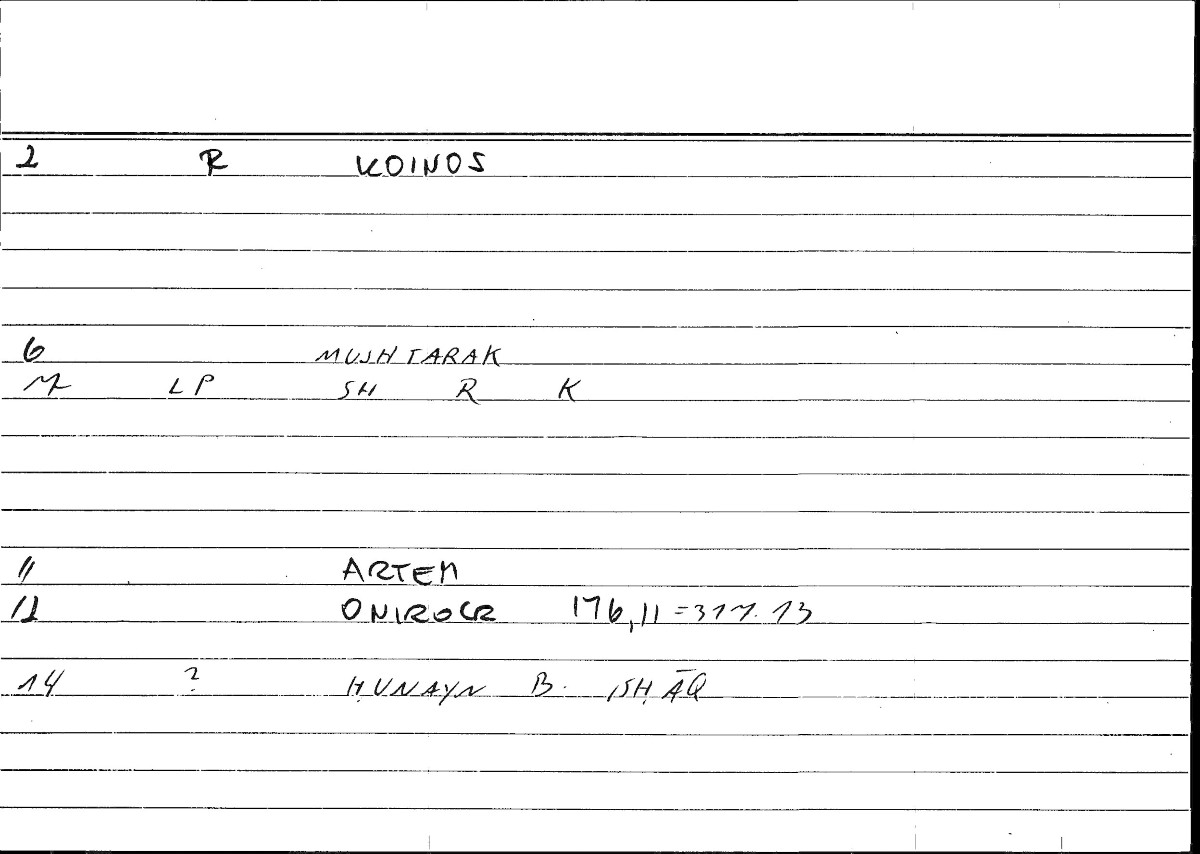 2 R KOINOS
6 MUSHTARAK
7 LP SH R K
11 ARTEM
12 ONIROCR 176,11 = 317.13
14 ? ḤUNAYN B. ISḤĀQ